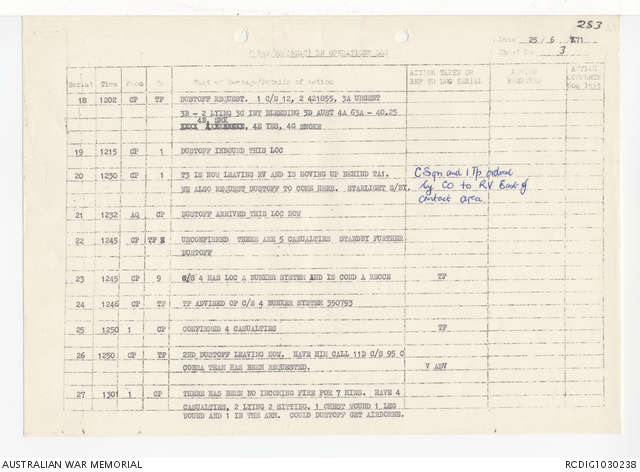 253
Date 25 / 6 /71
Sheet No. 3
Serial Time From To Text of Message/Details of Action ACTION TAKEN OR REF TO LOG SERIAL ACTION
18 1202 CP TF DUSTOFF REQUEST. 1 C/S 12, 2 421855, 3A URGENT
3B - 2 LYING 3C INT BLEEDING 3D AUST 4A 63A - 40.25
4E YES, 4G SMOKE
19 1215 CP 1 DUSTOFF INBOUND THIS LOC
20 1230 CP 1 T3 IS NOW LEAVING RV AND IS MOVING UP BEHIND TA1.
WE ALSO REQUEST DUSTOFF TO COME HERE. STARLIGHT S/BY.
C Sqn and 1 Tp ordered
by CO to RV East of
contact area.
21 1232 AQ CP DUSTOFF ARRIVED THIS LOC NOW
22 1245 CP TF UNCONFIRMED THERE ARE 5 CASUALTIES STANDBY FURTHER
DUSTOFF
23 1245 CP 9 C/S 4 HAS LOC A BUNKER SYSTEM AND IS COND A RECCE TF
24 1246 CP TF TF ADVISED OF C/S 4 BUNKER SYSTEM 350793
25 1250 1 CP CONFIRMED 4 CASUALTIES TF
26 1250 CP TF 2ND DUSTOFF LEAVING NOW. HAVE HIM CALL 11D C/S 95 C
COBRA TEAM HAS BEEN REQUESTED. V ADV
27 1301 1 CP THERE HAS BEEN NO INCOMING FIRE FOR 7 MINS. HAVE 4
CASUALTIES, 2 LYING 2 SITTING. 1 CHEST WOUND 1 LEG
WOUND AND 1 IN THE ARM. COULD DUSTOFF GET AIRBORNE.
AUSTRALIAN WAR MEMORIAL
RCDIG1030238